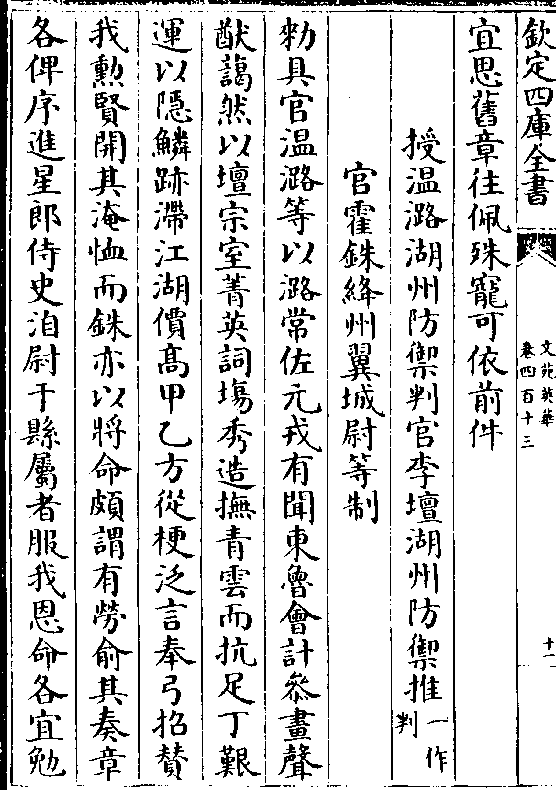 欽定四庫全書
文苑英華
卷四百十三
十一
宜思舊章往佩殊寵可依前件
授温潞湖州防禦判官李壇湖州防禦推一作判
官霍銖絳州翼城尉等制
勑具官温潞等以潞常佐元戎有聞東魯會計叅畫聲
猷藹然以壇宗室菁英詞塲秀造撫青雲而抗足丁艱
運以隠鱗跡滯江湖價髙甲乙方從梗泛言奉弓招賛
我勲賢開其淹恤而銖亦以將命頗謂有勞俞其奏章
各俾序進星郎侍史洎尉于縣屬者服我恩命各宜勉